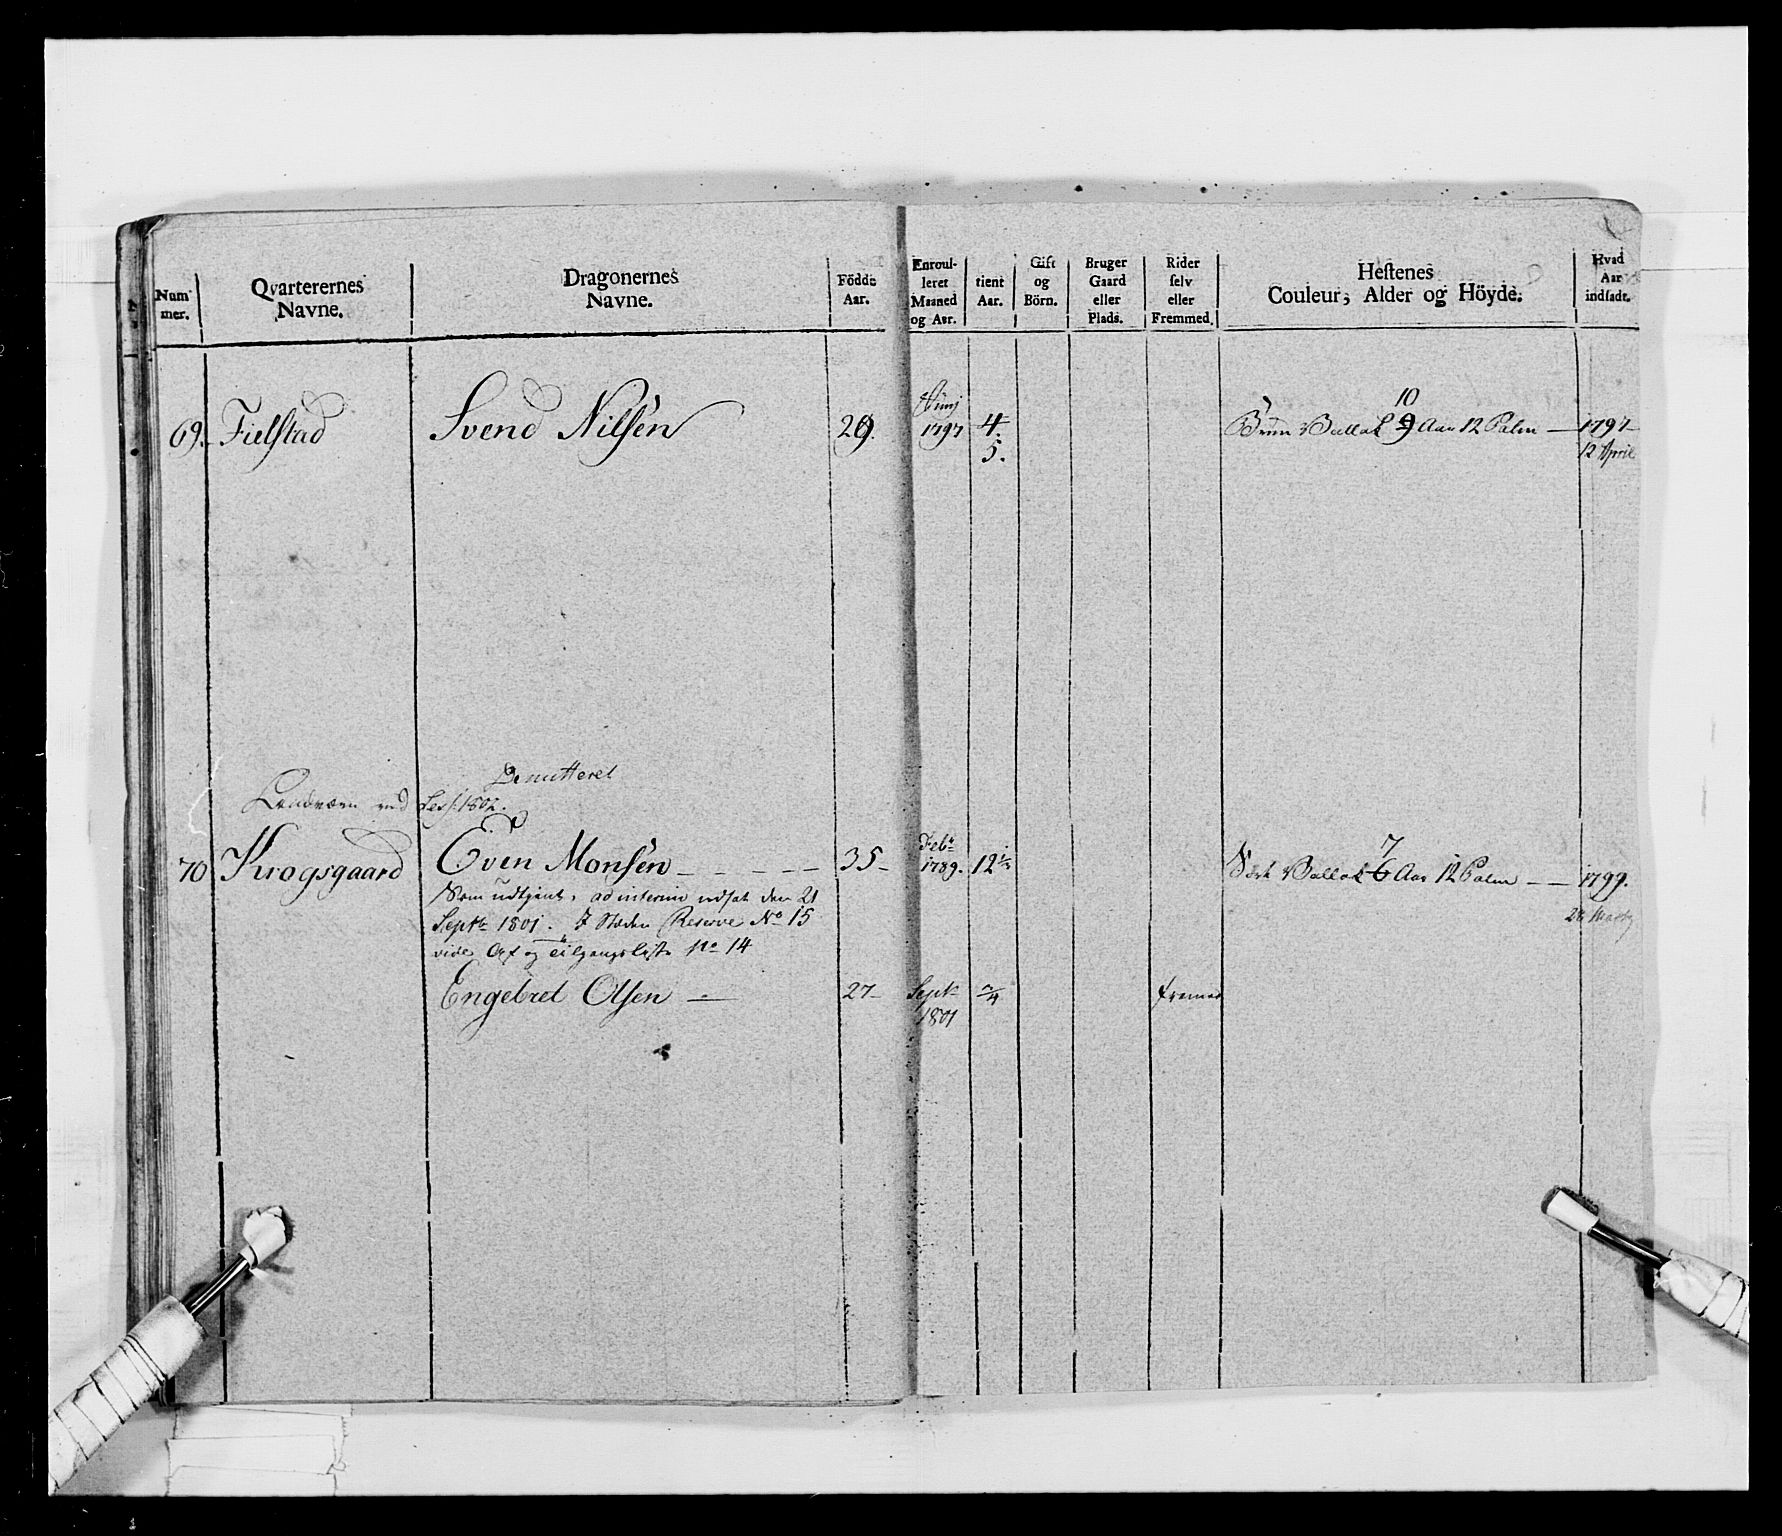 Num-
mer.
Qvarterernes
Navne.
Dragonernes
Navne.
Födde
Aar.
Enroul-
leret
Maaned
og Aar.
tient
Aar.
Gift
og
Börn.
Bruger
Gaard
eller
Plads.
Rider
selv
eller
Fremmed.
Hestenes
Couleur, Alder og Höyde.
Hvad
Aar
indsadt.
69. Fielstad Svend Nilsen 29. Junj 1797 4 5.
10
Brun Vallak 9 Aar 12 Palm — 1797
12 April
Demitteret
Landværn ved Sess: 1802.
70 Krogsgaard Even Monsen 35 Febr 1789. 12 1/2
7
Sort Vallak 6 Aar 12 Palm — 1799.
Som udtjent, ad interim udsat den 21
Septbr 1801. I Steden Reserve No 15
vide Af og tilgangsliste No 14
Engebret Olsen — 27 Septr 1801 fremed